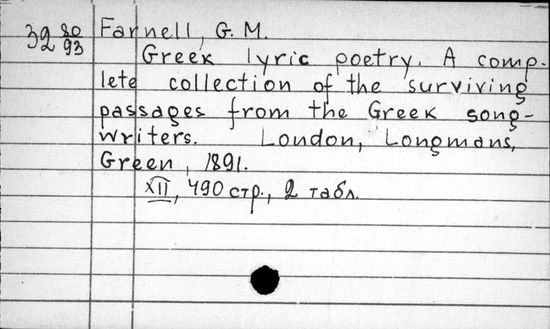 32 80/93 Farnell, G. M.
Greek lyric poetry. A comp-
lete collection of the surviving
passages from the Greek song-
writers. London, Longmans,
Green, 1891.
XII, 490 стр., 2 табл.